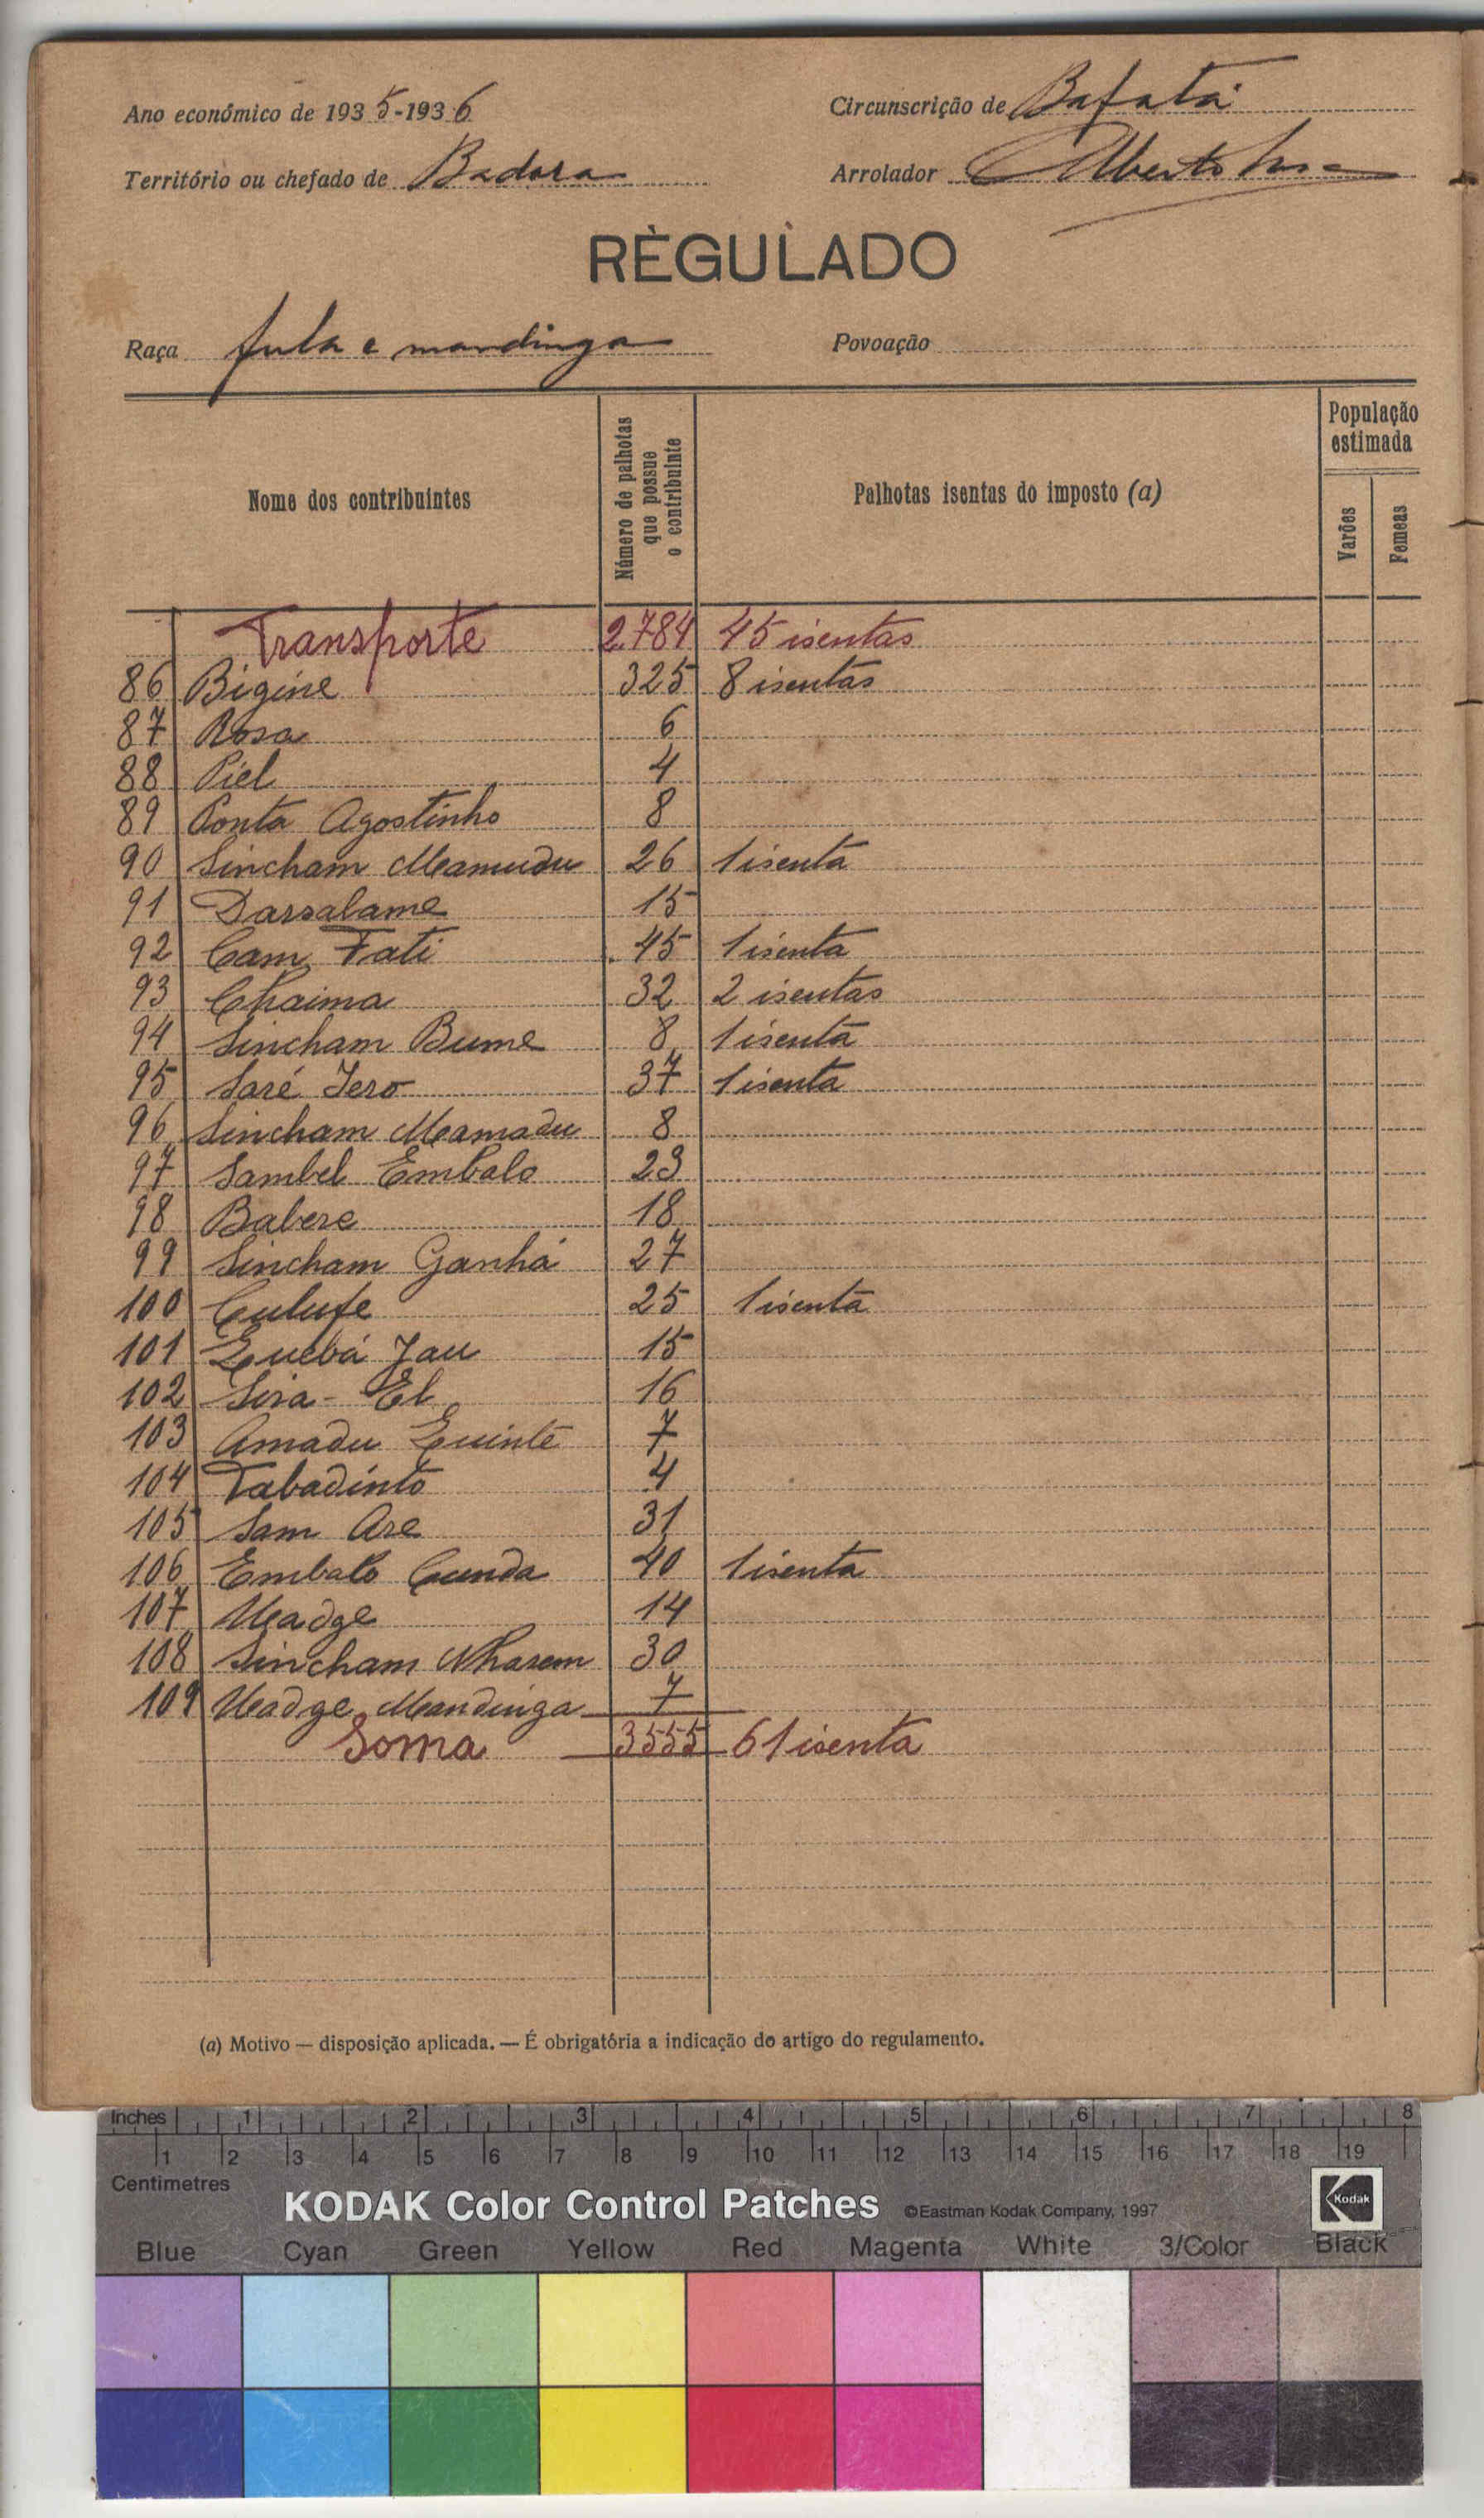 Ano económico de 1935-1936
Circunscrição de Bafatá
Território ou chefado de Badora
Arrolador Alberto
REGULADO
Raça fula e mandinga
Povoação
Nome dos contribuintes
Número de palhotas que possue o contribuinte
Palhotas isentas do imposto (a)
População estimada
Varões
Femeas
Transporte 2.784 45 isentas
86 Bigine 325 8 isentas
87 Rosa 6
88 Piel 4
89 Ponta Agostinho 8
90 Sincham Mamudu 26 1 isenta
91 Darsalame 15
92 Cam Fati 45 1 isenta
93 Chaima 32 2 isentas
94 Sincham Bume 8 1 isenta
95 Saré Iero 37 1 isenta
96 Sincham Mamadu 8
97 Sambel Embalo 23
98 Babere 18
99 Sincham Ganhá 27
100 Culufe 25 1 isenta
101 Quebá Jau 15
102 Sira-El 16
103 Amadu Quinte 7
104 Tabadinto 4
105 Sam Are 31
106 Embalo Cunda 40 1 isenta
107 Madge 14
108 Sincham Nharem 30
109 Madge Mandinga 7
Soma 3555 61 isenta
(a) Motivo — disposição aplicada. — É obrigatória a indicação do artigo do regulamento.
Inches 1 2 3 4 5 6 7 8
1 2 3 4 5 6 7 8 9 10 11 12 13 14 15 16 17 18 19
Centimetres
KODAK Color Control Patches ©Eastman Kodak Company, 1997 Kodak
Blue Cyan Green Yellow Red Magenta White 3/Color Black